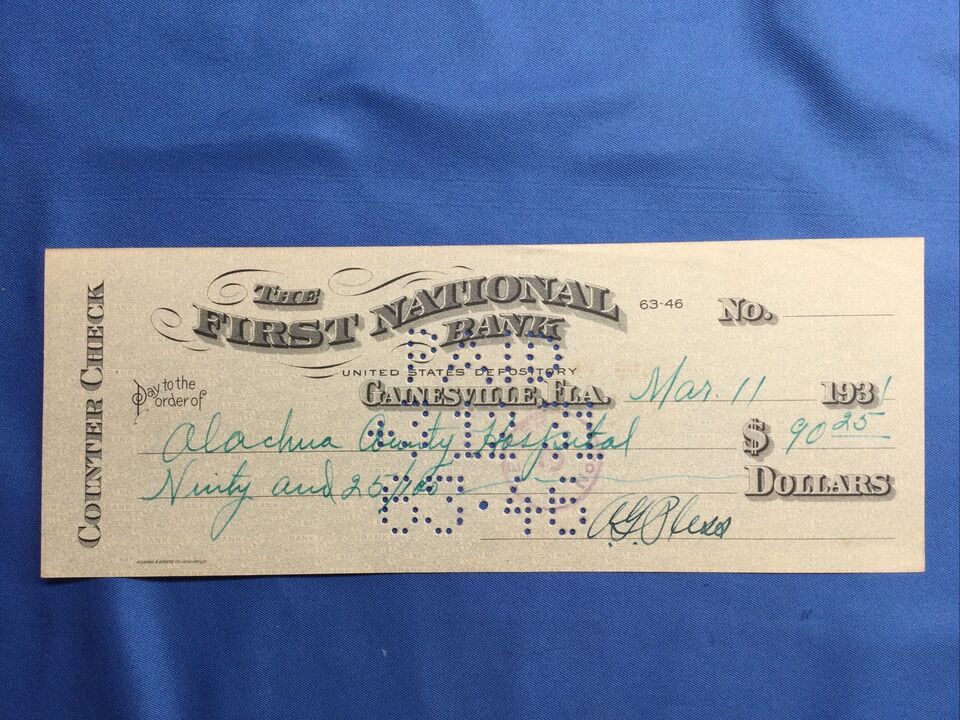 COUNTER CHECK
THE
FIRST NATIONAL
BANK
63-46
No.
UNITED STATES DEPOSITORY
GAINESVILLE, FLA. Mar. 11 1931
Pay to the
order of
Alachua County Hospital $ 90 25
Ninty and 25/100 DOLLARS
PAID
63·46